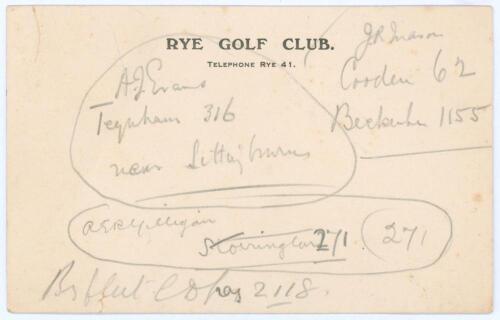 RYE GOLF CLUB.
TELEPHONE RYE 41.
J.R. Mason
Cooden 62
Beckenham 1155
A J Evans
Teynham 316
near Sittingbourne
A.E.R. Gilligan
Storrington 271
271
2118.